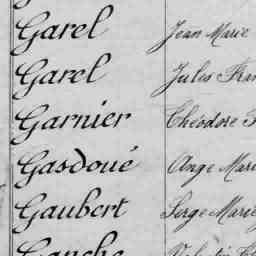 Garel Jean Marie
Garel Jules
Garnier Théodore
Gasdoué Ange
Gaubert Serge
Gauche